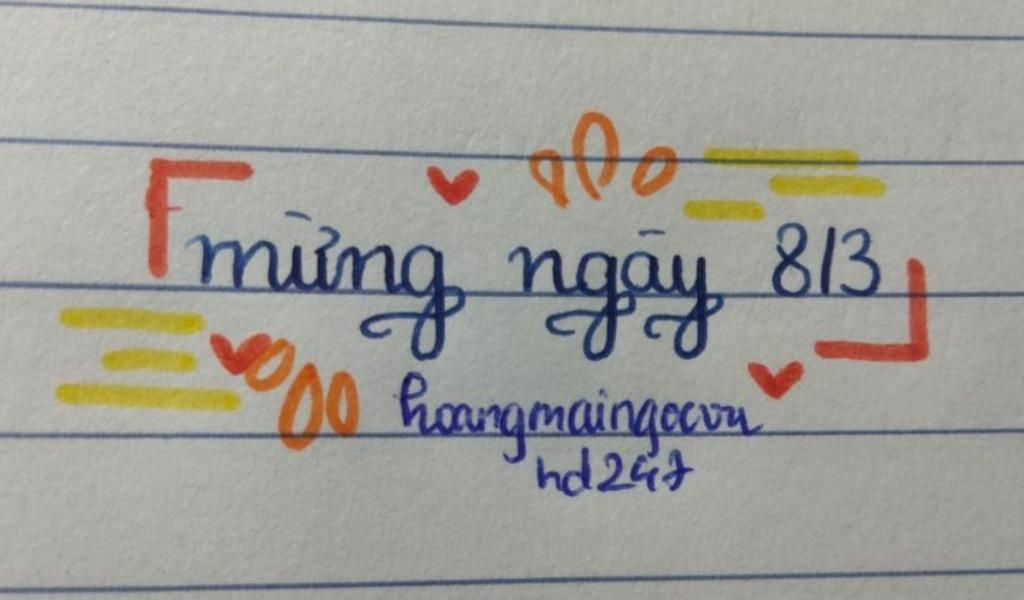 mừng ngày 8/3
hoangmaingocvu
hd247